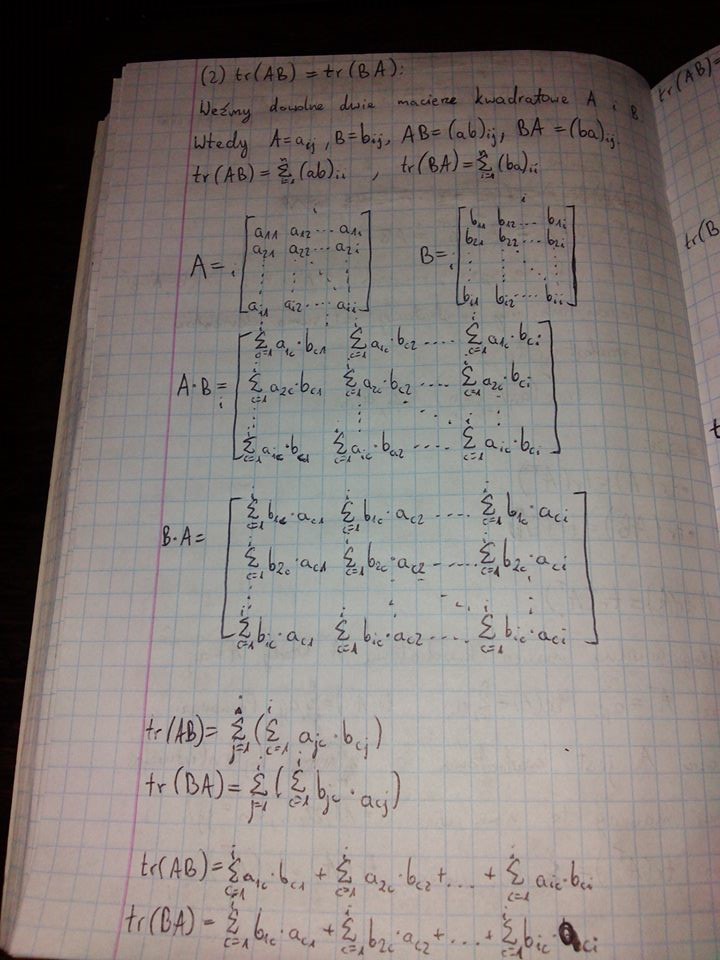 (2) tr(AB) = tr(BA):
Weźmy dowolne dwie macierze kwadratowe A i B
Wtedy A=a_ij, B=b_ij, AB=(ab)_ij, BA=(ba)_ij.
tr(AB) = Σ_{i=1}^{n} (ab)_ii , tr(BA) = Σ_{i=1}^{n} (ba)_ii
i i
A = i [ a_11 a_12 ... a_1i B = i [ b_11 b_12 ... b_1i
a_21 a_22 ... a_2i b_21 b_22 ... b_2i
a_i1 a_i2 ... a_ii ] b_i1 b_i2 ... b_ii ]
A·B = i [ Σ_{c=1}^{i} a_1c·b_c1 Σ_{c=1}^{i} a_1c·b_c2 .... Σ_{c=1}^{i} a_1c·b_ci
Σ_{c=1}^{i} a_2c·b_c1 Σ_{c=1}^{i} a_2c·b_c2 .... Σ_{c=1}^{i} a_2c·b_ci
Σ_{c=1}^{i} a_ic·b_c1 Σ_{c=1}^{i} a_ic·b_a2 .... Σ_{c=1}^{i} a_ic·b_ci ]
B·A = [ Σ_{c=1}^{i} b_1c·a_c1 Σ_{c=1}^{i} b_1c·a_c2 .... Σ_{c=1}^{i} b_1c·a_ci
Σ_{c=1}^{i} b_2c·a_c1 Σ_{c=1}^{i} b_2c·a_c2 .... Σ_{c=1}^{i} b_2c·a_ci
Σ_{c=1}^{i} b_ic·a_c1 Σ_{c=1}^{i} b_ic·a_c2 .... Σ_{c=1}^{i} b_ic·a_ci ]
tr(AB) = Σ_{j=1}^{i} (Σ_{c=1}^{i} a_jc·b_cj)
tr(BA) = Σ_{j=1}^{i} (Σ_{c=1}^{i} b_jc·a_cj)
tr(AB) = Σ_{c=1}^{i} a_1c·b_c1 + Σ_{c=1}^{i} a_2c·b_c2 + ... + Σ_{c=1}^{i} a_ic·b_ci
tr(BA) = Σ_{c=1}^{i} b_1c·a_c1 + Σ_{c=1}^{i} b_2c·a_c2 + ... + Σ_{c=1}^{i} b_ic·a_ci
tr(AB)=